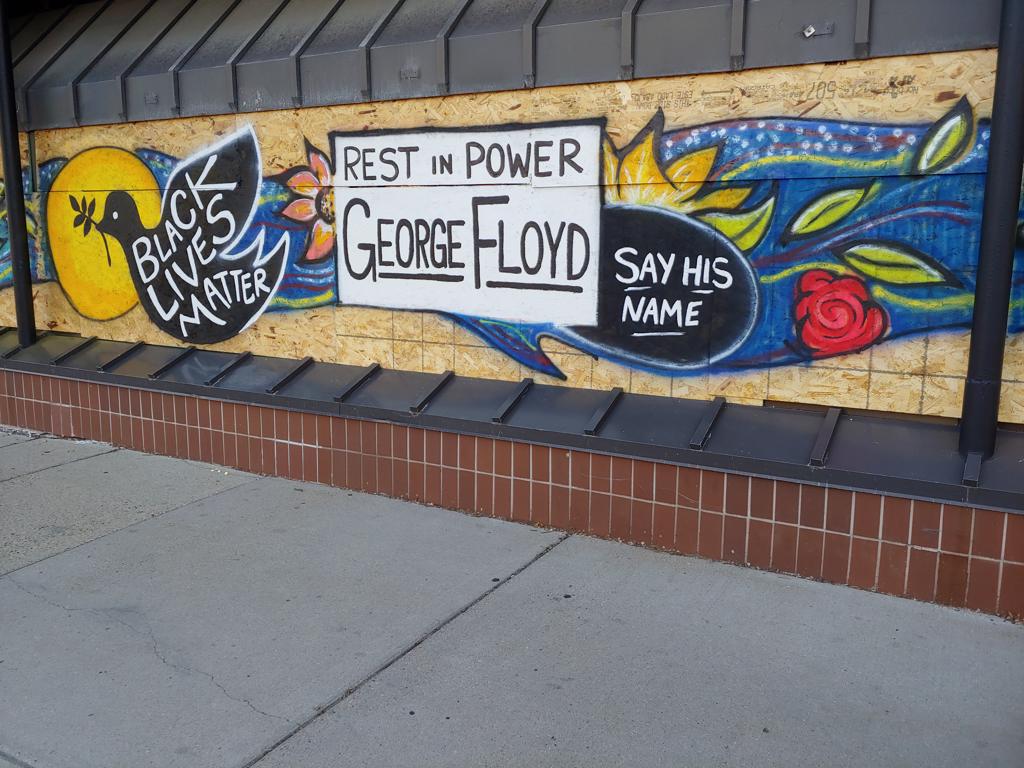 BLACK
LIVES
MATTER
REST IN POWER
GEORGE FLOYD
SAY HIS
NAME